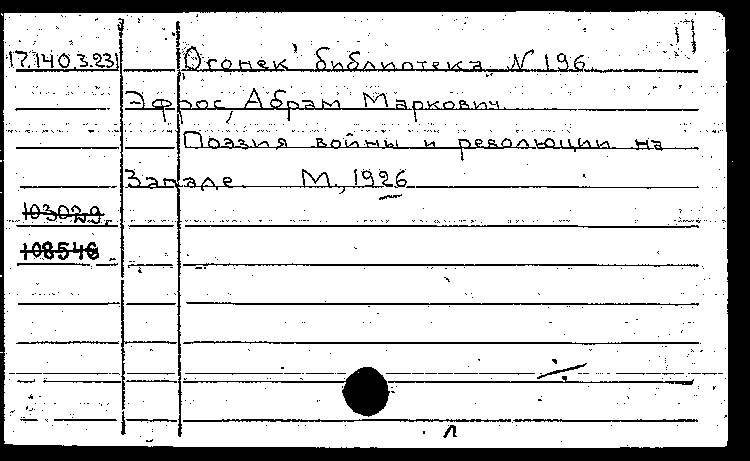 17.140.3.231 Огонек' библиотека N 196
Эфрос, Абрам Маркович.
Поэзия войны и революции на
Западе. М., 1926
103029.
108548
л